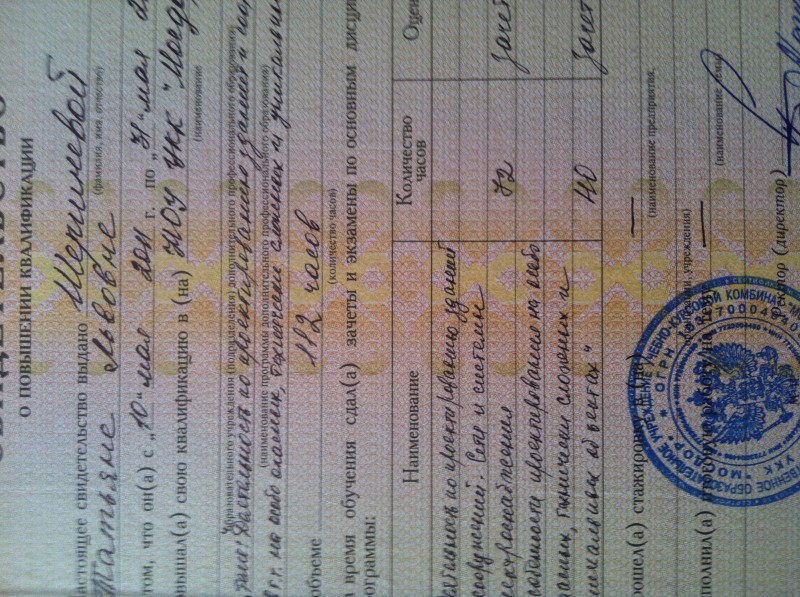 О ПОВЫШЕНИИ КВАЛИФИКАЦИИ
астоящее свидетельство выдано
Татьяне Львовне
(фамилия, имя, отчество)
том, что он(а) с „10" мая 2011 г. по „31" мая
овышал(а) свою квалификацию в (на) НОУ УКК "Молдо
(наименование
образовательного учреждения (подразделения) дополнительного профессионального образования)
Деятельность по проектированию зданий и соор
(наименование программы дополнительного профессионального образования)
на особо опасных, технически сложных и уникальн
объеме 112 часов
(количество часов)
время обучения сдал(а) зачеты и экзамены по основным дисци
ограммы:
Наименование
Количество часов
Оцен
по проектированию зданий
сооружений. Сети и системы
ектроснабжения
72
Зачет
собенности проектирования на особо
пасных, технически сложных и
никальных объектах"
40
Зачет
рошел(а) стажировку в (на)
(наименование предприятия,
учреждения)
полнил(а)
(наименование темы)
(директор)
УЧЕБНО-КУРСОВОЙ КОМБИНАТ
ОГРН
УКК "МОЛДОР"